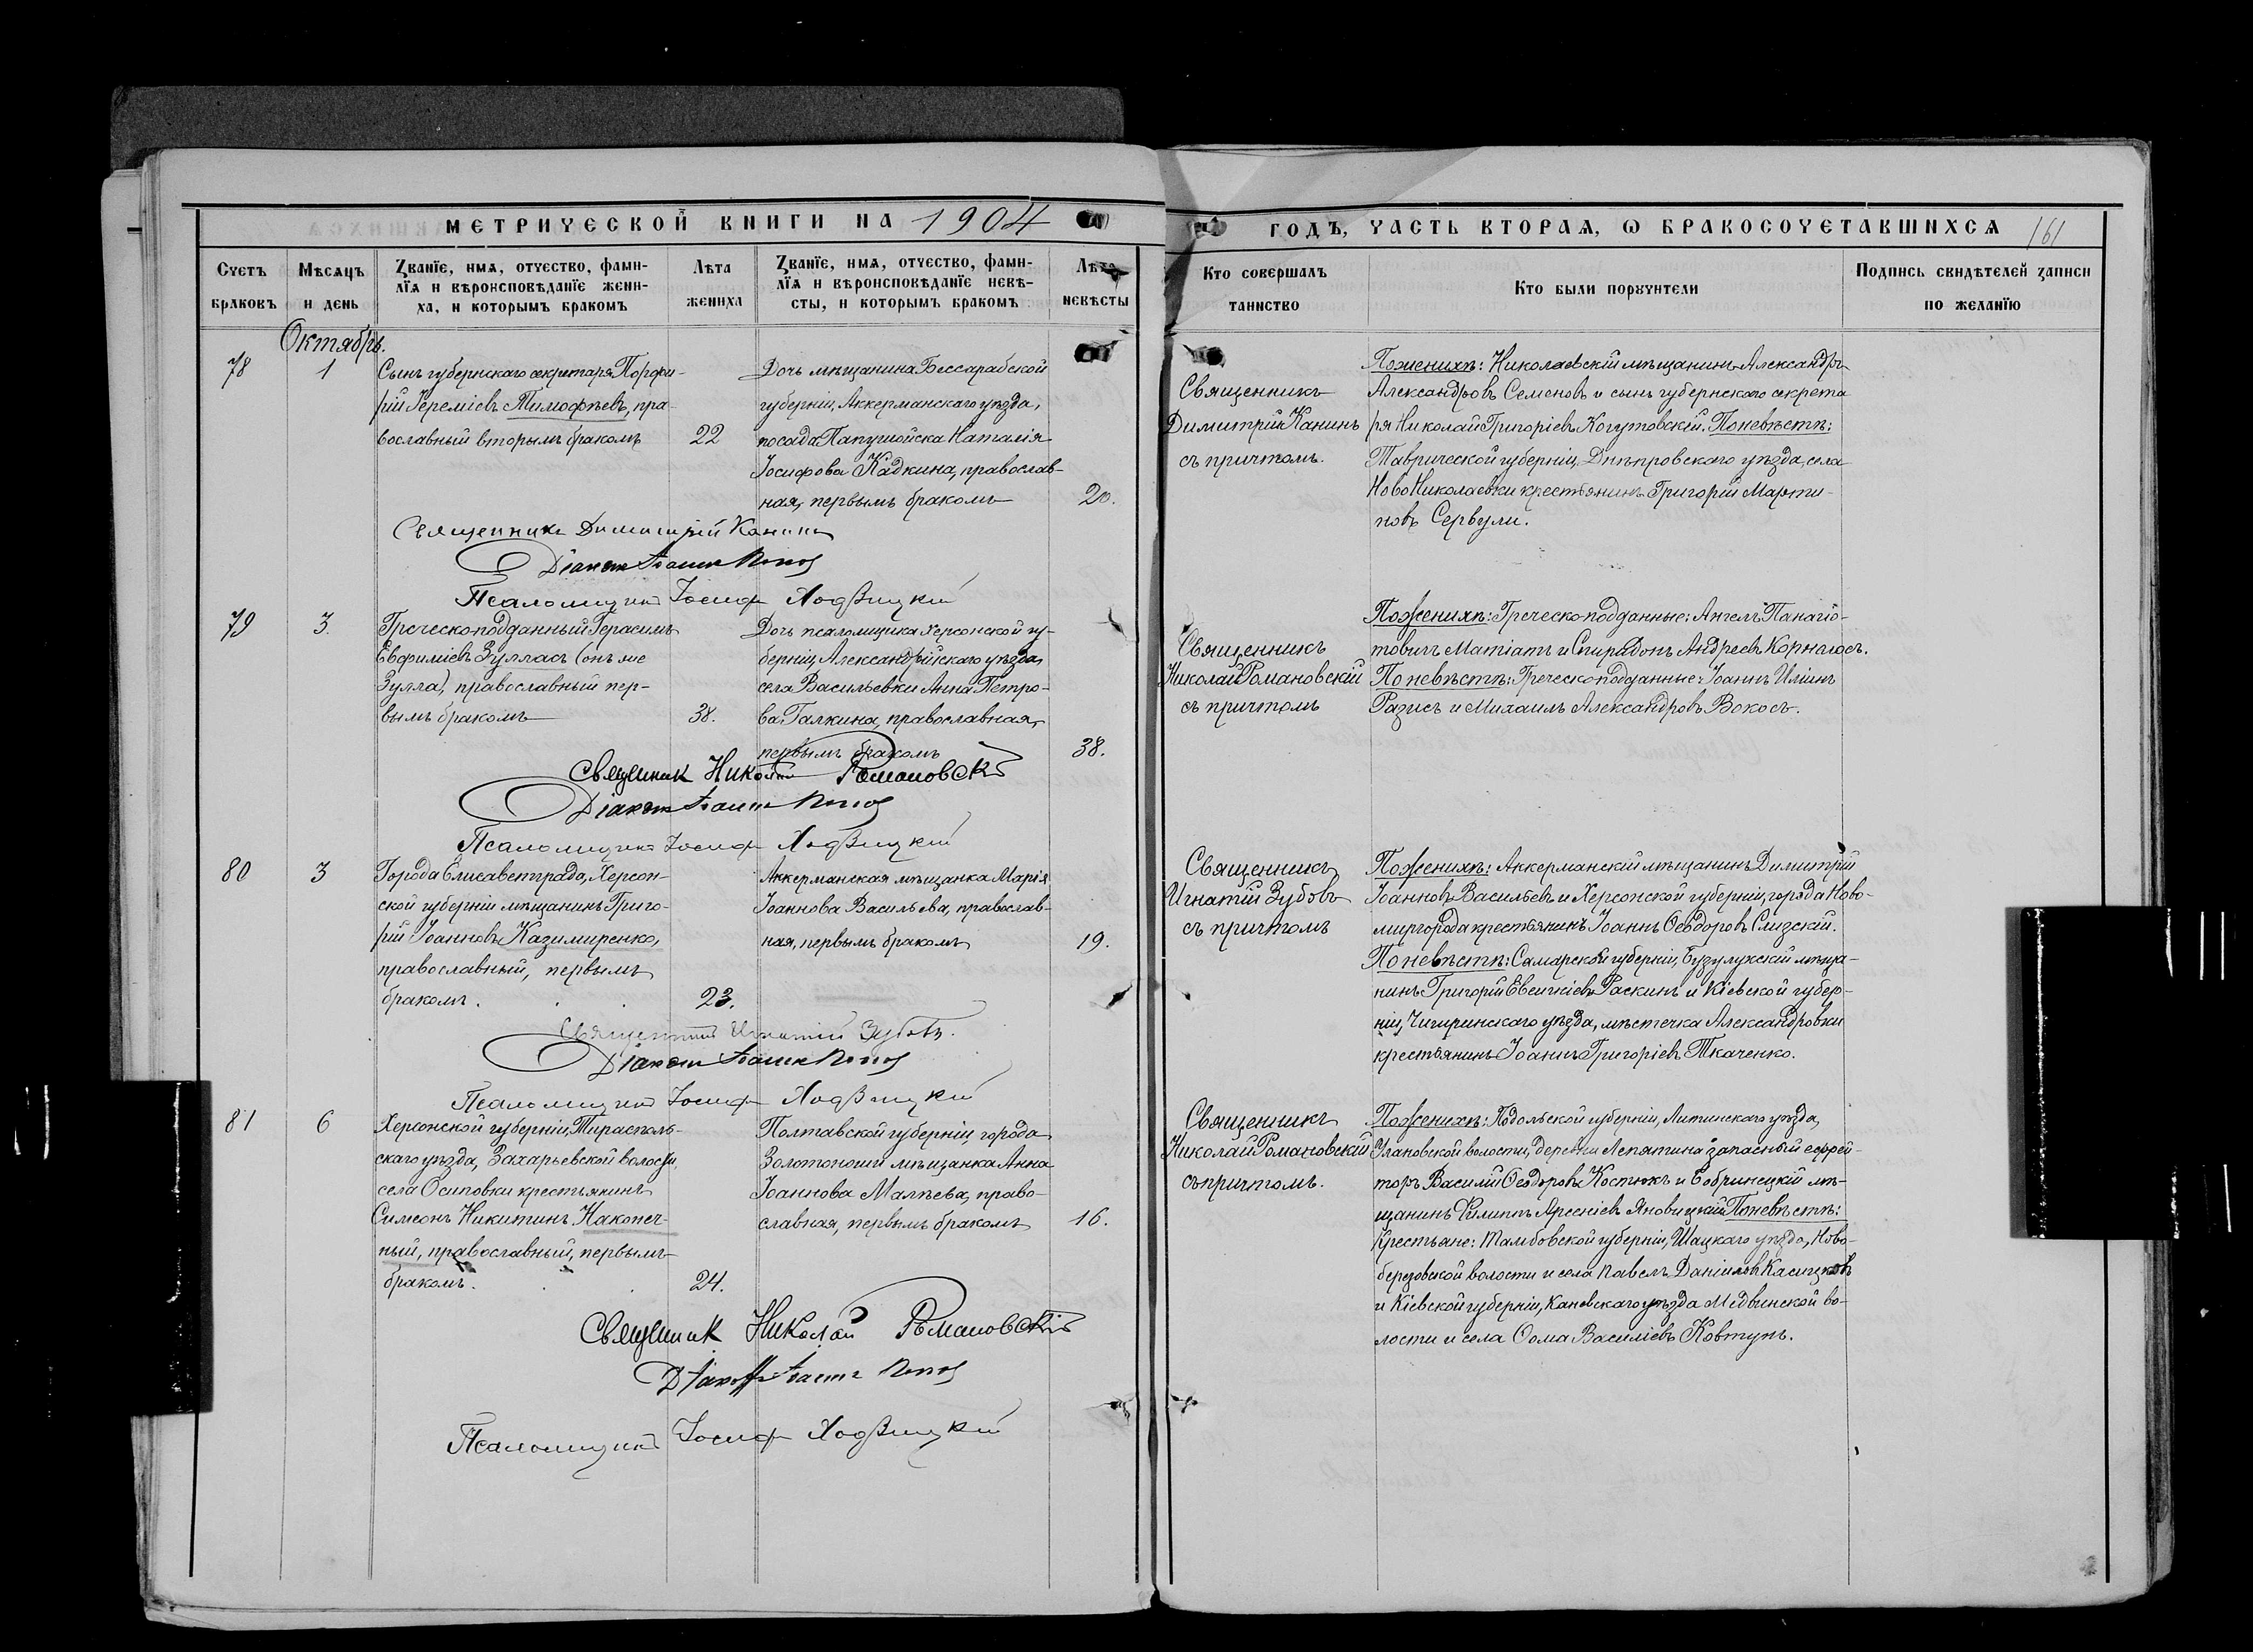 МЕТРИЧЕСКОЙ КНИГИ НА 1904
ГОДЪ, ЧАСТЬ ВТОРАѦ, Ѡ БРАКОСОЧЕТАВШИХСѦ 161
Счетъ браковъ
Мѣсѧцъ и день
Званїе, имѧ, отчество, фами-
лїѧ и вѣроисповѣданїе жени-
ха, и которымъ бракомъ
Лѣта жениха
Званїе, имѧ, отчество, фами-
лїѧ и вѣроисповѣданїе невѣ-
сты, и которымъ бракомъ
Лѣта невѣсты
Кто совершалъ таинство
Кто были порꙋчители
Подпись свидѣтелей записи
по желанїю
Октябрь.
78
1
Сынъ губернскаго секретаря Порфи-
рій Іереміевъ Тимофѣевъ, пра-
вославный вторымъ бракомъ
22
Дочь мѣщанина Бессарабской
губерніи, Аккерманскаго уѣзда,
посада Папушойска Наталія
Іосифова Кадкина, православ-
ная, первымъ бракомъ
20.
Священникъ
Димитрій Канинъ
съ причтомъ.
По женихѣ: Николаевскій мѣщанинъ Александръ
Александровъ Семеновъ и сынъ губернскаго секрета
ря Николай Григоріевъ Когутовскій. По невѣстѣ:
Таврической губерніи, Днѣпровскаго уѣзда, села
Ново Николаевки крестьянинъ Григорій Марти-
новъ Сервули.
Священникъ Димитрій Канинъ
Діаконъ Іоаннъ
Псаломщикъ Іосифъ Ходзицкій
79
3.
Греческоподданный Герасимъ
Евфиміевъ Зулласъ (онъ же
Зулла), православный пер-
вымъ бракомъ
38.
Дочь псаломщика Херсонской гу-
берніи Александрійскаго уѣзда,
села Васильевки Анна Петро-
ва Галкина, православная,
первымъ бракомъ
38.
Священникъ
Николай Романовскій
съ причтомъ
По женихѣ: Греческоподданные: Ангелъ Панагіо-
товичъ Матіатъ и Спиридонъ Андреевъ Корнагосъ.
По невѣстѣ: Греческоподданные: Іоаннъ Иліинъ
Разисъ и Михаилъ Александровъ Вокосъ.
Священик Николай Романовскій
Діаконъ Іоаннъ
Псаломщикъ Іосифъ Ходзицкій
80
3
Города Елисаветграда, Херсон-
ской губерніи мѣщанинъ Григо-
рій Іоанновъ Казимиренко,
православный, первымъ
бракомъ.
23.
Аккерманская мѣщанка Марія
Іоаннова Васильева, православ-
ная, первымъ бракомъ
19.
Священникъ
Игнатій Зубовъ
съ причтомъ
По женихѣ: Аккерманскій мѣщанинъ Димитрій
Іоанновъ Васильевъ и Херсонской губерніи, города Ново-
миргорода крестьянинъ Іоаннъ Ѳеодоровъ Слизскій.
По невѣстѣ: Самарской губерніи, Бузулукскій мѣща-
нинъ Григорій Евсигніевъ Раскинъ и Кіевской губер-
ніи, Чигиринскаго уѣзда, мѣстечка Александровки
крестьянинъ Іоаннъ Григоріевъ Ткаченко.
Священникъ Игнатій Зубовъ.
Діаконъ Іоаннъ
Псаломщикъ Іосифъ Ходзицкій
81
6
Херсонской губерніи, Тирасполь-
скаго уѣзда, Захарьевской волости,
села Осиповки крестьянинъ
Симеонъ Никитинъ Наконеч-
ный, православный, первымъ
бракомъ.
24.
Полтавской губерніи города
Золотоноши мѣщанка Анна
Іоаннова Малѣева, право-
славная, первымъ бракомъ
16.
Священникъ
Николай Романовскій
съ причтомъ.
По женихѣ: Подольской губерніи, Литинскаго уѣзда,
Улановской волости, деревни Лепятина запасный ефрей-
торъ Василій Ѳеодоровъ Костюкъ и Бобринецкій мѣ-
щанинъ Филиппъ Арсеніевъ Яновицкій По невѣстѣ:
Крестьяне: Тамбовской губерніи, Шацкаго уѣзда, Ново-
березовской волости и села Павелъ Даніиловъ Касицковъ
и Кіевской губерніи, Каневскаго уѣзда Медвинской во-
лости и села Ѳома Василіевъ Ковтунъ.
Священик Николай Романовскій
Діаконъ Іоаннъ
Псаломщикъ Іосифъ Ходзицкій